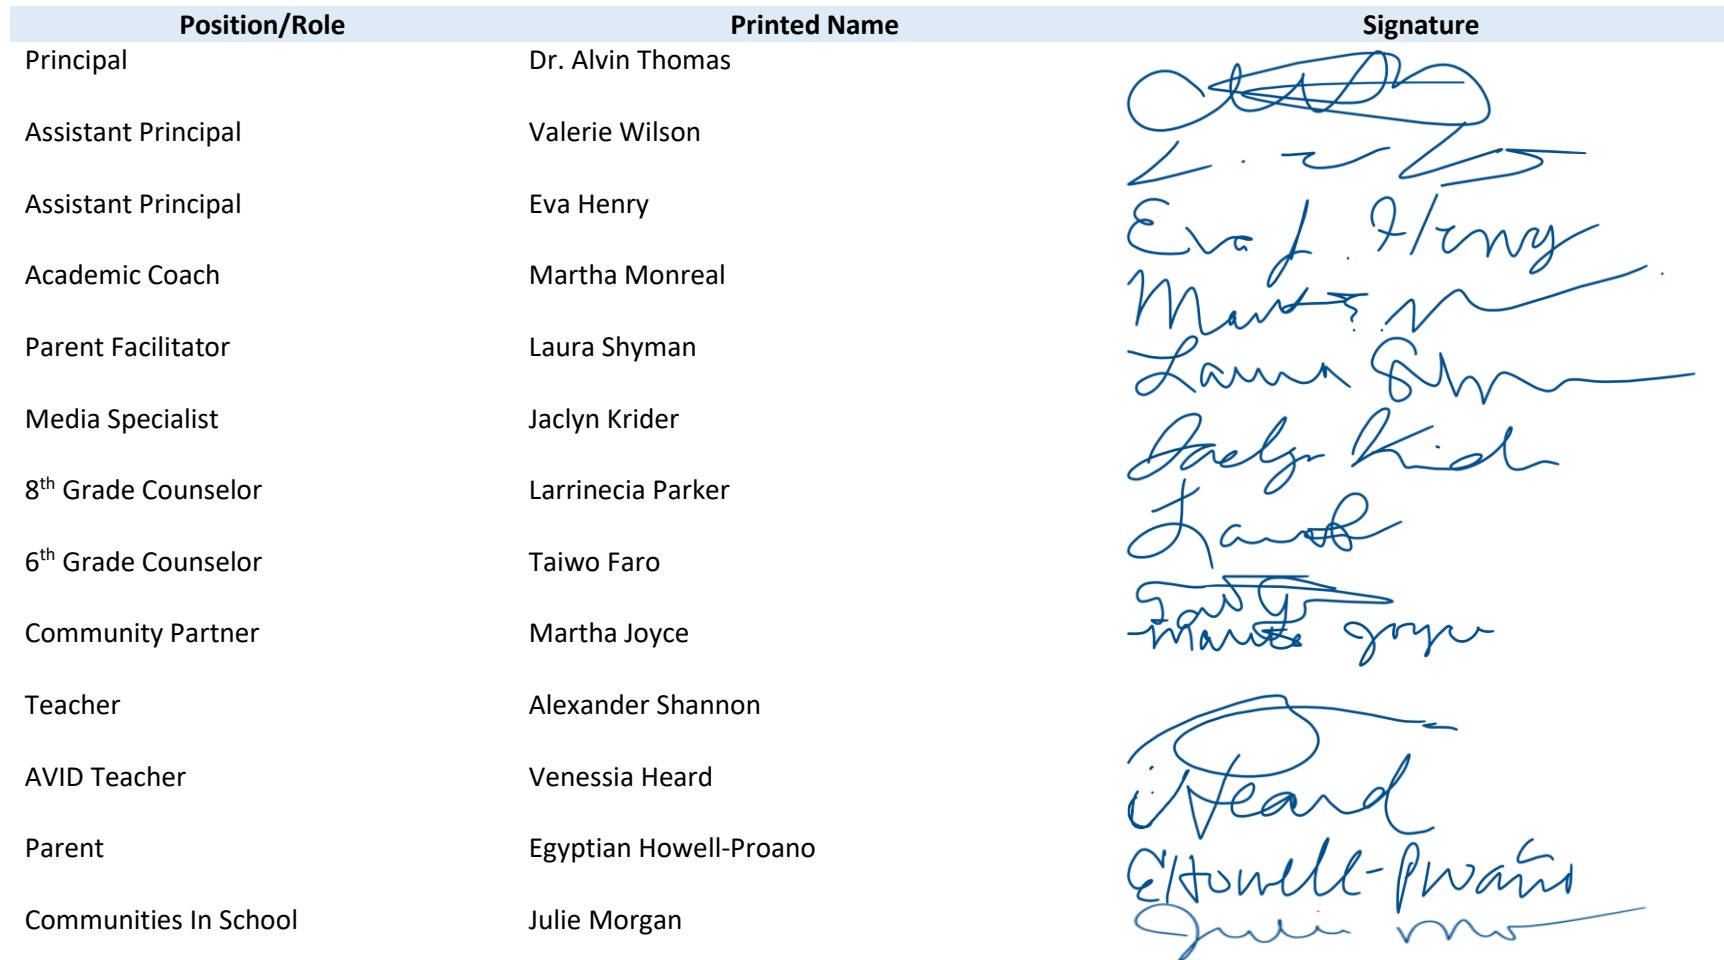 Position/Role Printed Name Signature
Principal Dr. Alvin Thomas
Assistant Principal Valerie Wilson
Assistant Principal Eva Henry Eva J. Henry
Academic Coach Martha Monreal
Parent Facilitator Laura Shyman Laura
Media Specialist Jaclyn Krider Jaclyn
8th Grade Counselor Larrinecia Parker
6th Grade Counselor Taiwo Faro
Community Partner Martha Joyce Martha Joyce
Teacher Alexander Shannon
AVID Teacher Venessia Heard Heard
Parent Egyptian Howell-Proano EHowell-Proaño
Communities In School Julie Morgan Julie